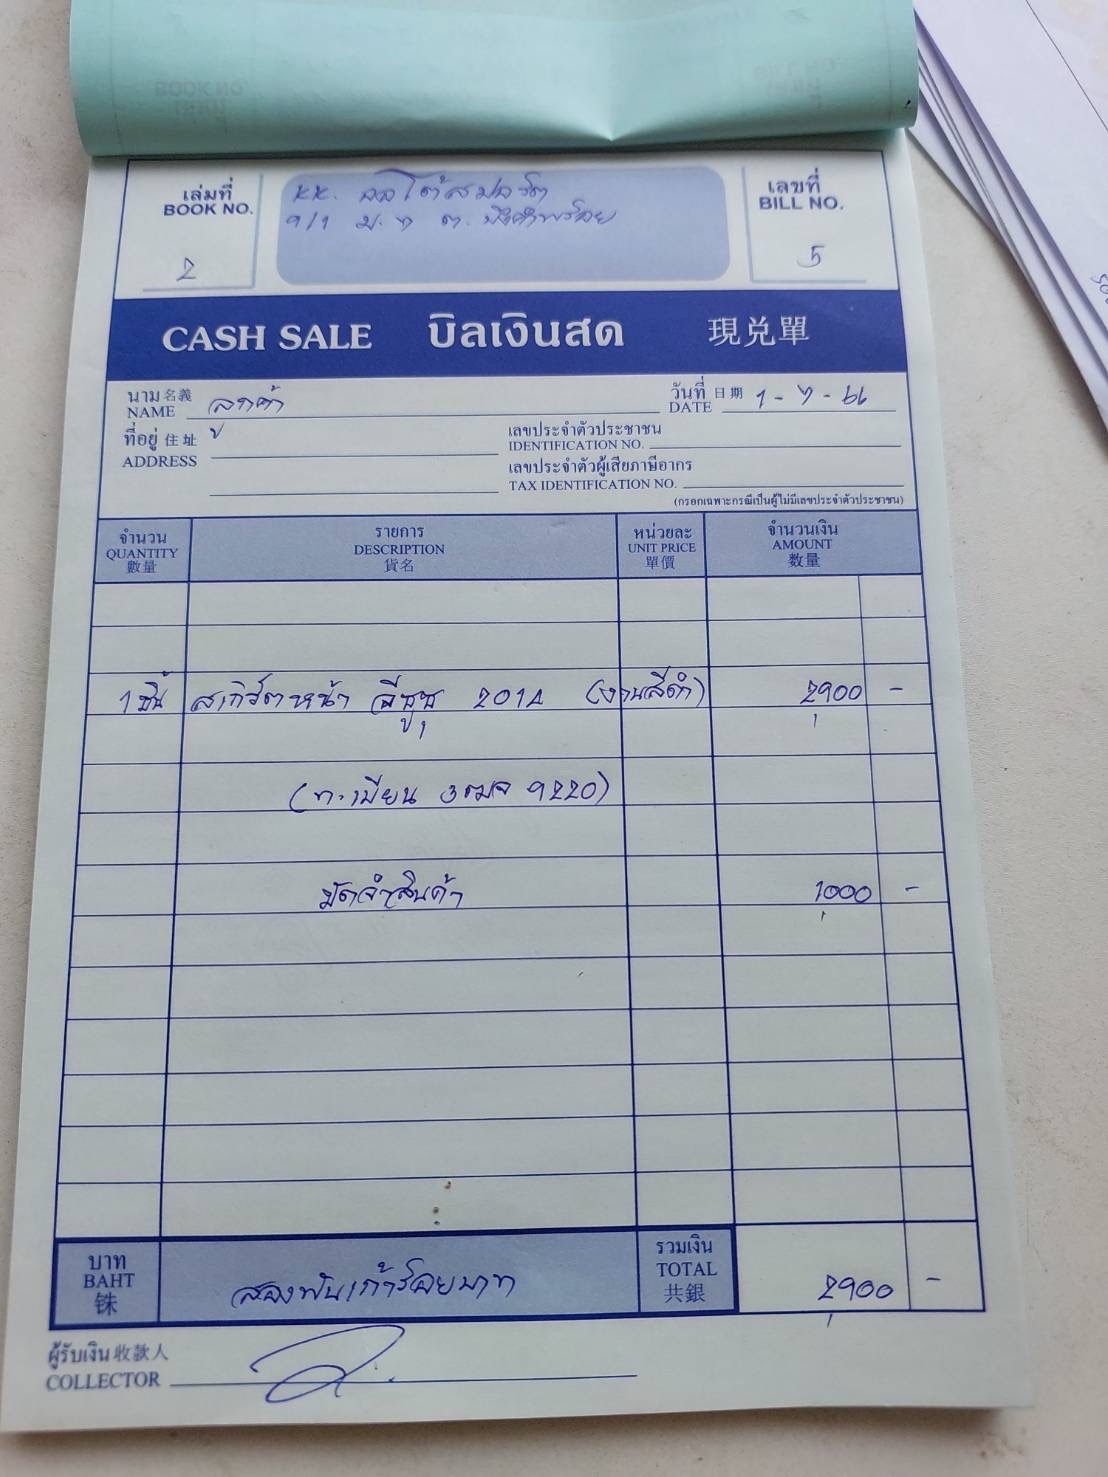 เล่มที่
BOOK NO.
2
KK. ออโต้สปอร์ต
9/1 ม.7 ต. บึงคำพร้อย
เลขที่
BILL NO.
5
CASH SALE บิลเงินสด 現兑單
นาม 名義
NAME ลูกค้า
วันที่ 日期
DATE 1-7-66
ที่อยู่ 住址
ADDRESS
เลขประจำตัวประชาชน
IDENTIFICATION NO.
เลขประจำตัวผู้เสียภาษีอากร
TAX IDENTIFICATION NO.
(กรอกเฉพาะกรณีเป็นผู้ไม่มีเลขประจำตัวประชาชน)
จำนวน
QUANTITY
數量
รายการ
DESCRIPTION
貨名
หน่วยละ
UNIT PRICE
單價
จำนวนเงิน
AMOUNT
数量
1 ชิ้น สเกิร์ตหน้า อีซูซุ 2014 (งานสีดำ) 2,900 -
(ทะเบียน 3ฒจ 9220)
มัดจำสินค้า 1,000 -
บาท
BAHT
铢
สองพันเก้าร้อยบาท
รวมเงิน
TOTAL
共銀
2,900 -
ผู้รับเงิน 收款人
COLLECTOR